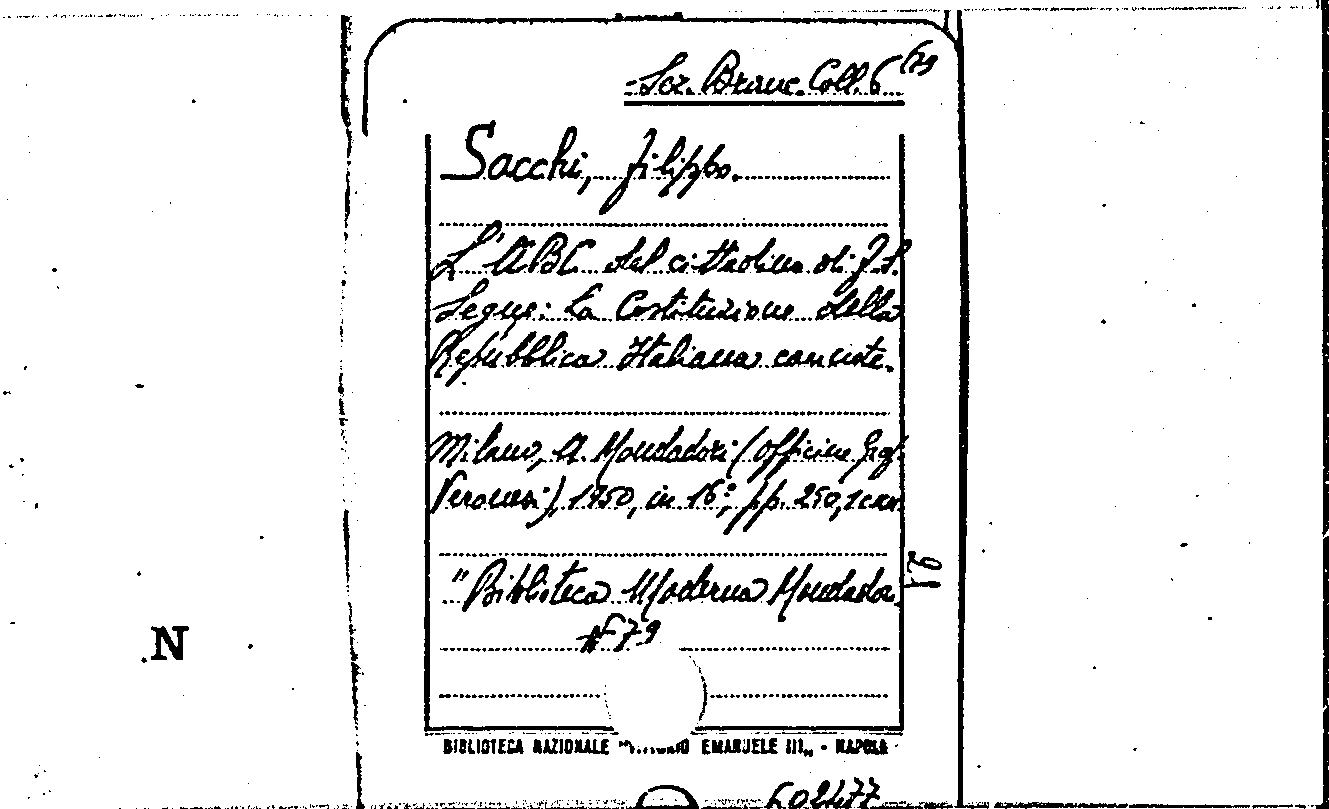 Sez. Branc. Coll. 6 (79
Sacchi, Filippo.
L'ABC del cittadino di F. S.
Segue: La Costituzione della
Repubblica Italiana
Milano, A. Mondadori (Officine Graf.
Veronesi), 1950, in 16º, pp. 250,
"Biblioteca Moderna Mondador.
Nº 79
N
BIBLIOTECA NAZIONALE EMANUELE III„ - NAPOLI
602477